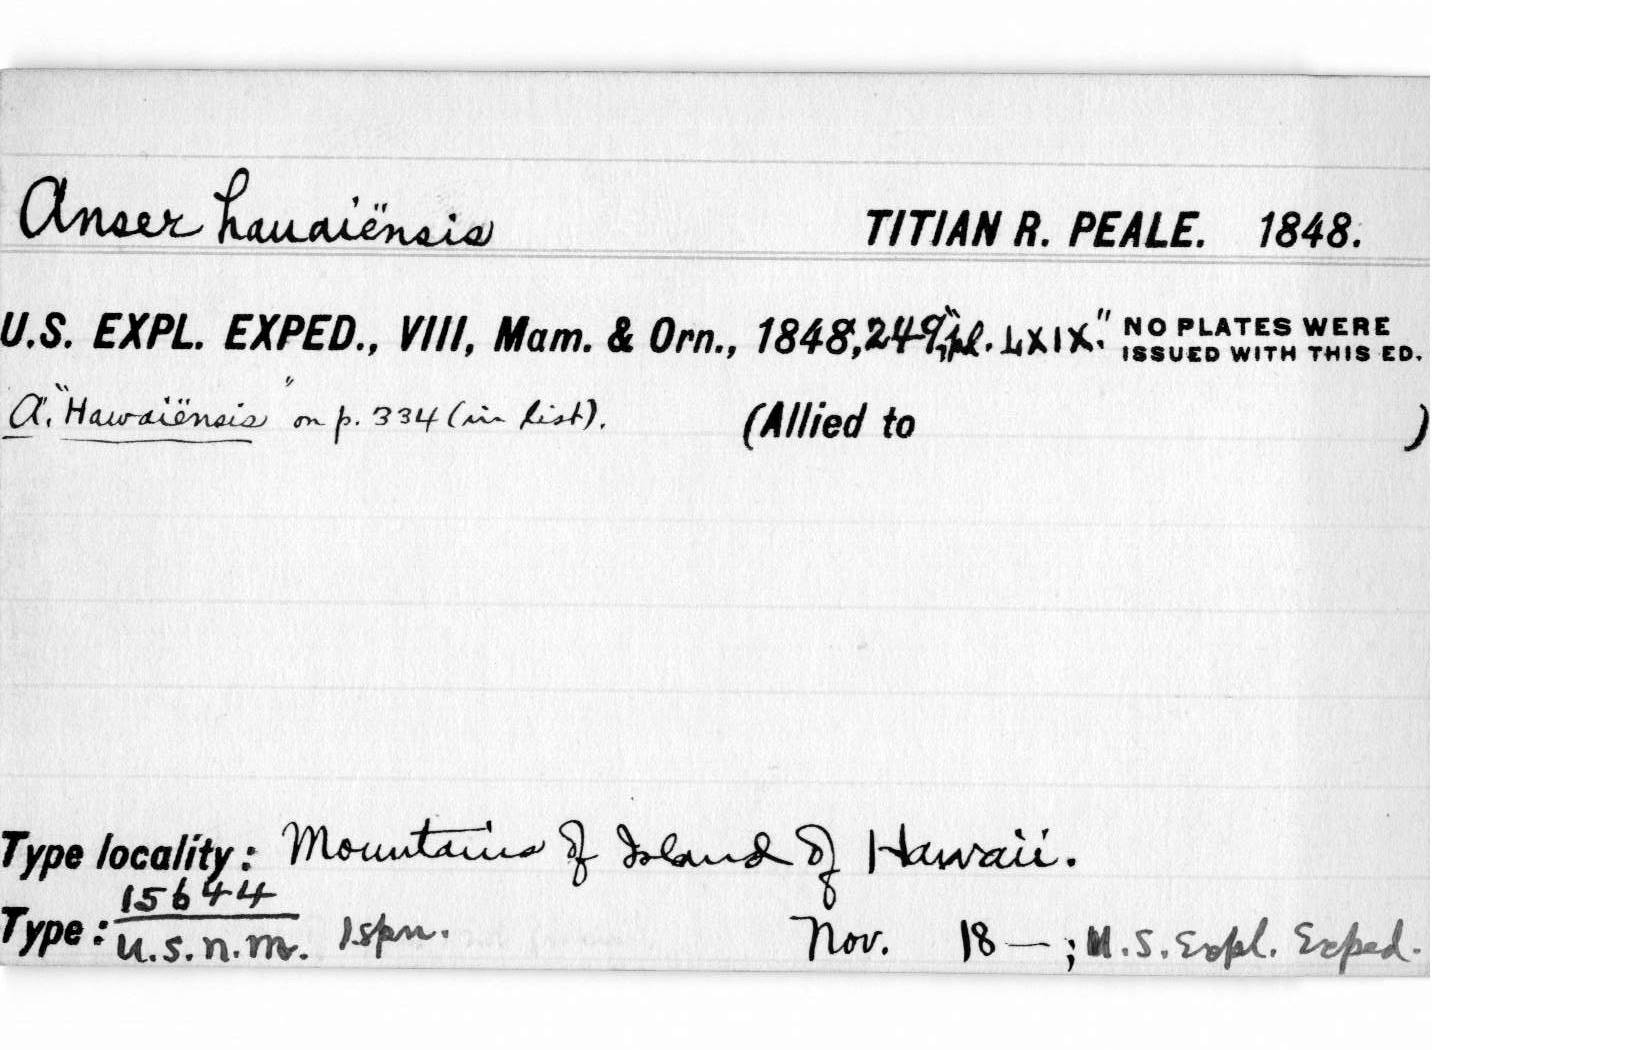 Anser hauaiënsis TITIAN R. PEALE. 1848.
U.S. EXPL. EXPED., VIII, Mam. & Orn., 1848, 249, "pl. LXIX." NO PLATES WERE ISSUED WITH THIS ED.
A. "Hawaiënsis" on p. 334 (in list). (Allied to )
Type locality: Mountains of Island of Hawaii.
Type: 15644 U.S.N.M. 1 spn. Nov. 18—; U.S. Expl. Exped.